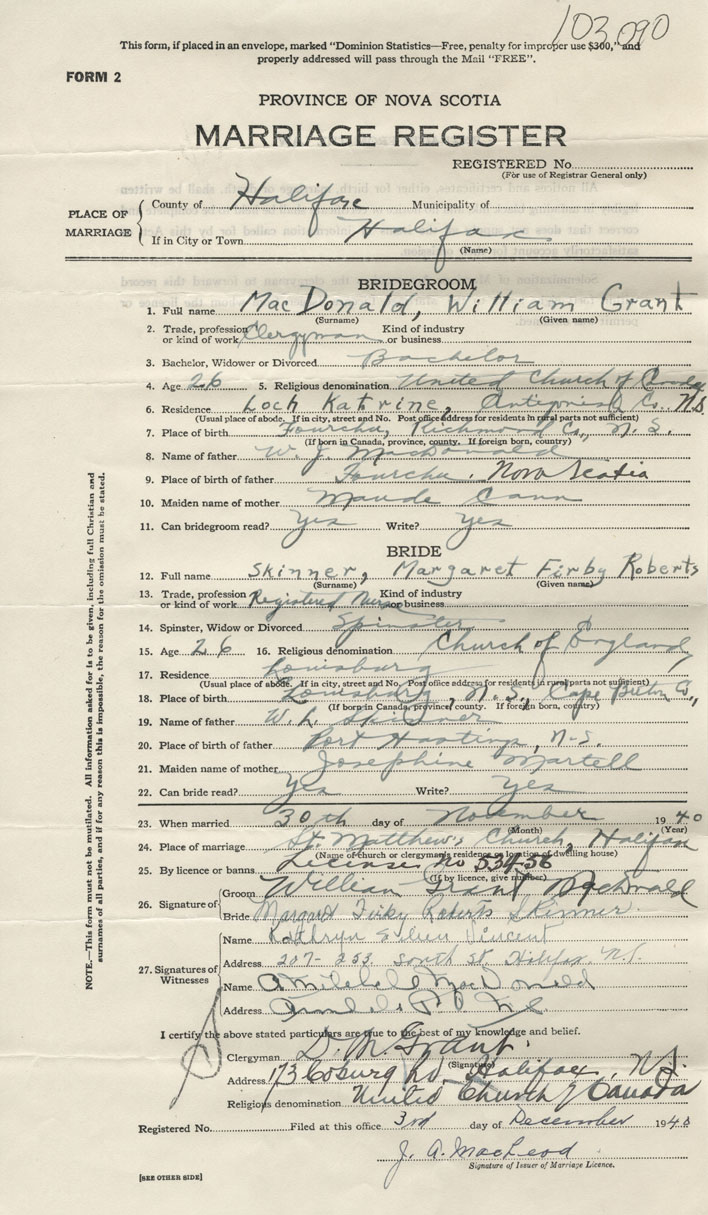 103,090
This form, if placed in an envelope, marked "Dominion Statistics—Free, penalty for improper use $300," and
properly addressed will pass through the Mail "FREE".
FORM 2
PROVINCE OF NOVA SCOTIA
MARRIAGE REGISTER
REGISTERED No.
(For use of Registrar General only)
PLACE OF MARRIAGE
County of Halifax Municipality of
If in City or Town Halifax
(Name)
BRIDEGROOM
1. Full name MacDonald, William Grant
(Surname) (Given name)
2. Trade, profession or kind of work Clergyman Kind of industry or business
3. Bachelor, Widower or Divorced Bachelor
4. Age 26 5. Religious denomination United Church of Canada
6. Residence Loch Katrine, Antigonish Co. N.S.
(Usual place of abode. If in city, street and No. Post office address for residents in rural parts not sufficient)
7. Place of birth Fourchu, Richmond Co., N.S.
(If born in Canada, province, county. If foreign born, country)
8. Name of father W. J. MacDonald
9. Place of birth of father Fourchu, Nova Scotia
10. Maiden name of mother Maude Cann
11. Can bridegroom read? Yes Write? Yes
BRIDE
12. Full name Skinner, Margaret Firby Roberts
(Surname) (Given name)
13. Trade, profession or kind of work Registered Nurse Kind of industry or business
14. Spinster, Widow or Divorced Spinster
15. Age 26 16. Religious denomination Church of England
17. Residence Louisburg
(Usual place of abode. If in city, street and No. Post office address for residents in rural parts not sufficient)
18. Place of birth Louisburg, N.S., Cape Breton Co.,
(If born in Canada, province, county. If foreign born, country)
19. Name of father W. L. Skinner
20. Place of birth of father Port Hastings, N.S.
21. Maiden name of mother Josephine Martell
22. Can bride read? Yes Write? Yes
23. When married 30th day of November 1940
(Month) (Year)
24. Place of marriage St. Matthew's Church, Halifax
(Name of church or clergyman's residence or location of dwelling house)
25. By licence or banns License No
(If by licence, give number)
26. Signature of
Groom William Grant MacDonald
Bride Margaret Firby Roberts Skinner
27. Signatures of Witnesses
Name Kathryn Eileen Vincent
Address 207-253 South St. Halifax. N.S.
Name MacDonald
Address
I certify the above stated particulars are true to the best of my knowledge and belief.
Clergyman D. M. Grant.
(Signature)
Address 173 Coburg Rd, Halifax, N.S.
Religious denomination United Church of Canada
Registered No. Filed at this office 3rd day of December 1940
J. A. MacLeod
Signature of Issuer of Marriage Licence.
[SEE OTHER SIDE]
NOTE.—This form must not be mutilated. All information asked for is to be given, including full Christian and
surnames of all parties, and if for any reason this is impossible, the reason for the omission must be stated.